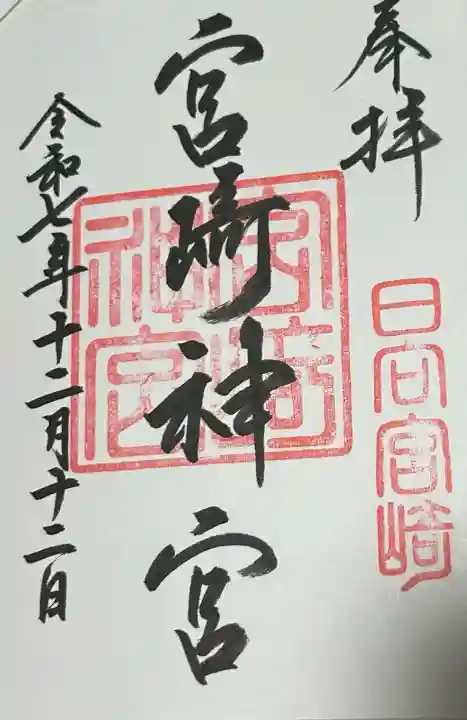 奉拝
日向宮崎
宮崎神宮
宮崎神宮
令和七年十二月十二日